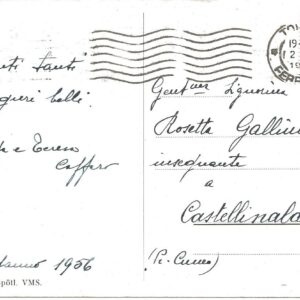 nti tanti
gueri belli
a e Teresa
Caffaro
danno 1956
pötl. VMS.
TO
19-
12
19
FERR
Gent.ma Signorina
Rosetta Gallin
insegnante
a
Castellinald
(Pr. Cuneo)